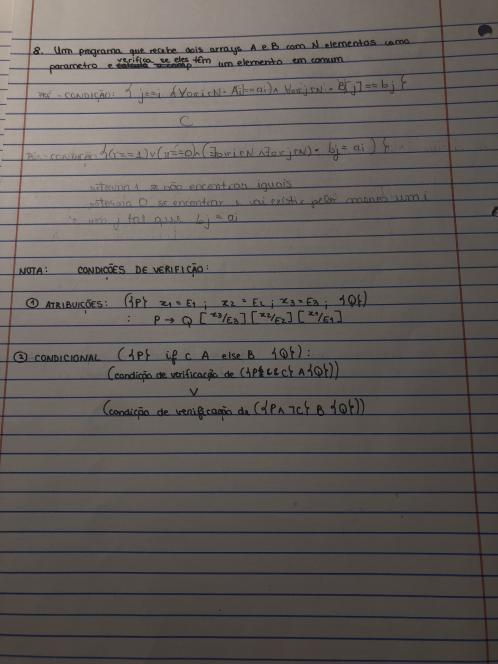 8. Um programa que recebe dois arrays A e B com N elementos como
parametro e verifica se eles têm um elemento em comum
PRÉ-CONDIÇÃO: { j==i ∧ ∀0≤i<N · A[i]==ai ∧ ∀0≤j<N · B[j]==bj }
C
PÓS-CONDIÇÃO: bj = ai) }
retorna 1 se não encontrar iguais
retorna 0 se encontrar e vai existir pelo menos um i
e um j tal que bj = ai
NOTA: CONDIÇÕES DE VERIFICAÇÃO:
① ATRIBUIÇÕES: ({P} x1 = E1 ; x2 = E2 ; x3 = E3 ; {Q})
: P → Q [x3/E3] [x2/E2] [x1/E1]
② CONDICIONAL ({P} if C A else B {Q}) :
(condição de verificação de ({P && C} A {Q}))
∨
(condição de verificação de ({P ∧ ¬C} B {Q}))